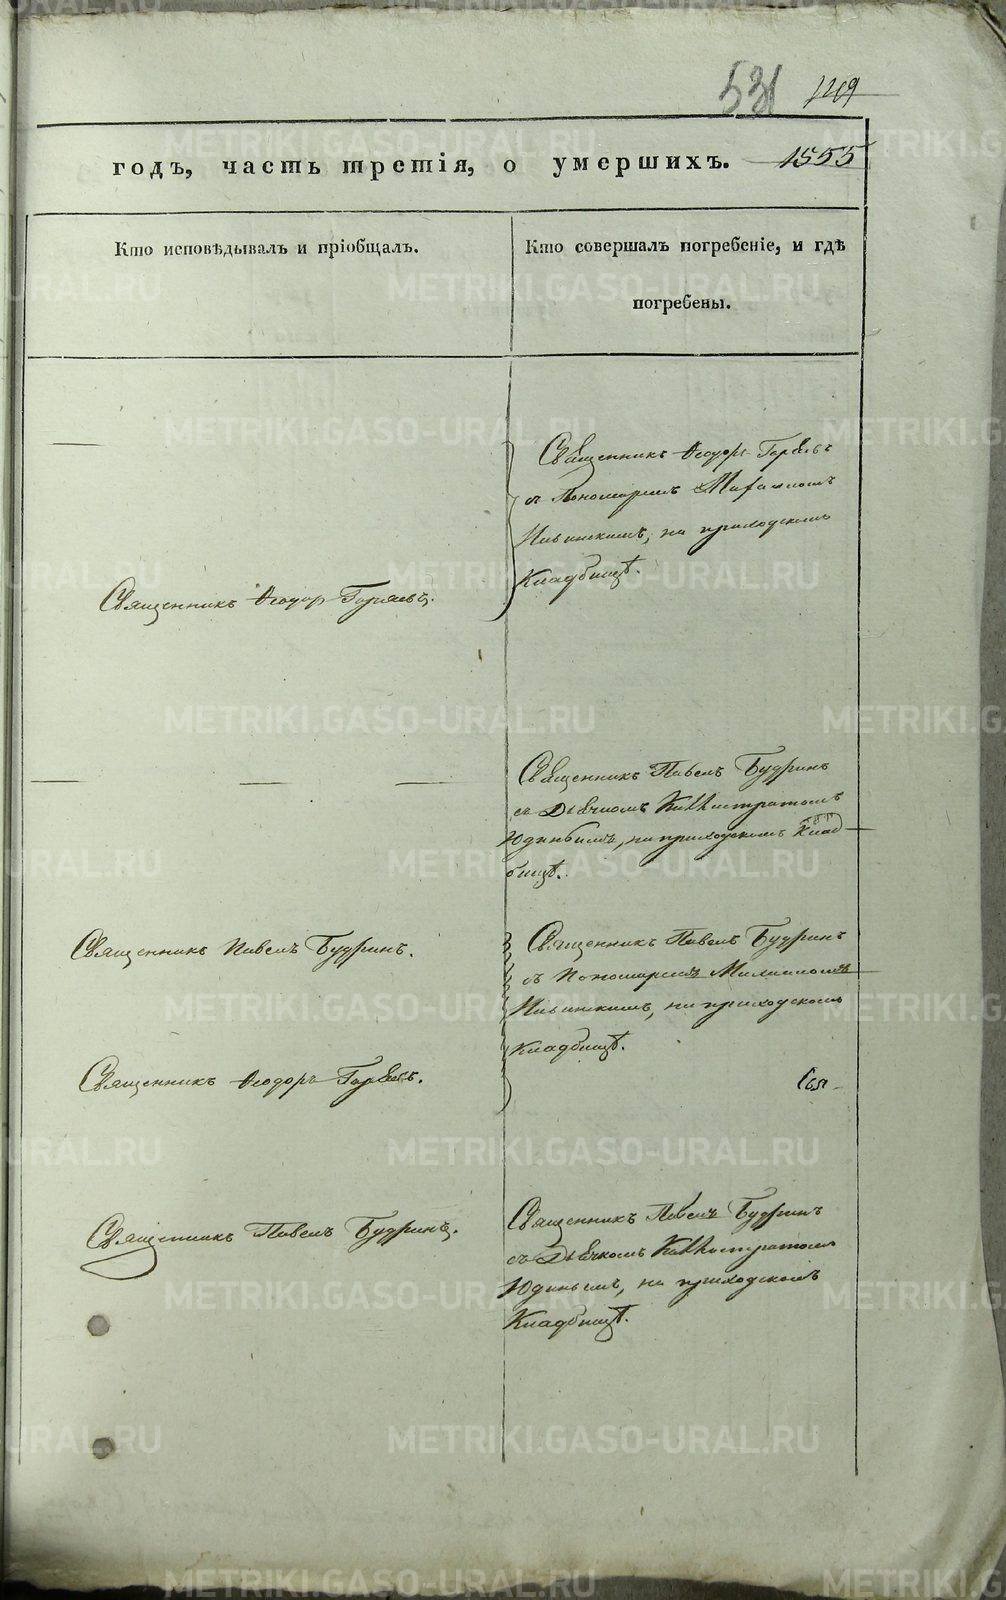 531 1219
годъ, часть третія, о умершихъ. 1555
Кто исповѣдывалъ и пріобщалъ.
Кто совершалъ погребеніе, и гдѣ
погребены.
Священникъ Ѳеодоръ
съ Пономаремъ
на приходскомъ
Кладбищѣ.
Священникъ Ѳеодоръ
Священникъ Павелъ Будринъ
съ Дьячкомъ Каллистратомъ
Юдинымъ, на приходскомъ Клад
бищѣ.
Священникъ Павелъ Будринъ.
Священникъ Павелъ Будринъ
съ Пономаремъ
на приходскомъ
Кладбищѣ.
Священникъ Ѳеодоръ
Священникъ Павелъ Будринъ.
Священникъ Павелъ Будринъ
съ Дьячкомъ Каллистратомъ
Юдинымъ, на приходскомъ
Кладбищѣ.
METRIKI.GASO-URAL.RU